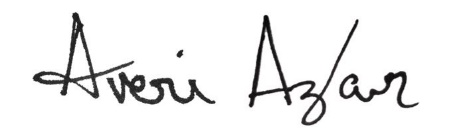 Averi Azar